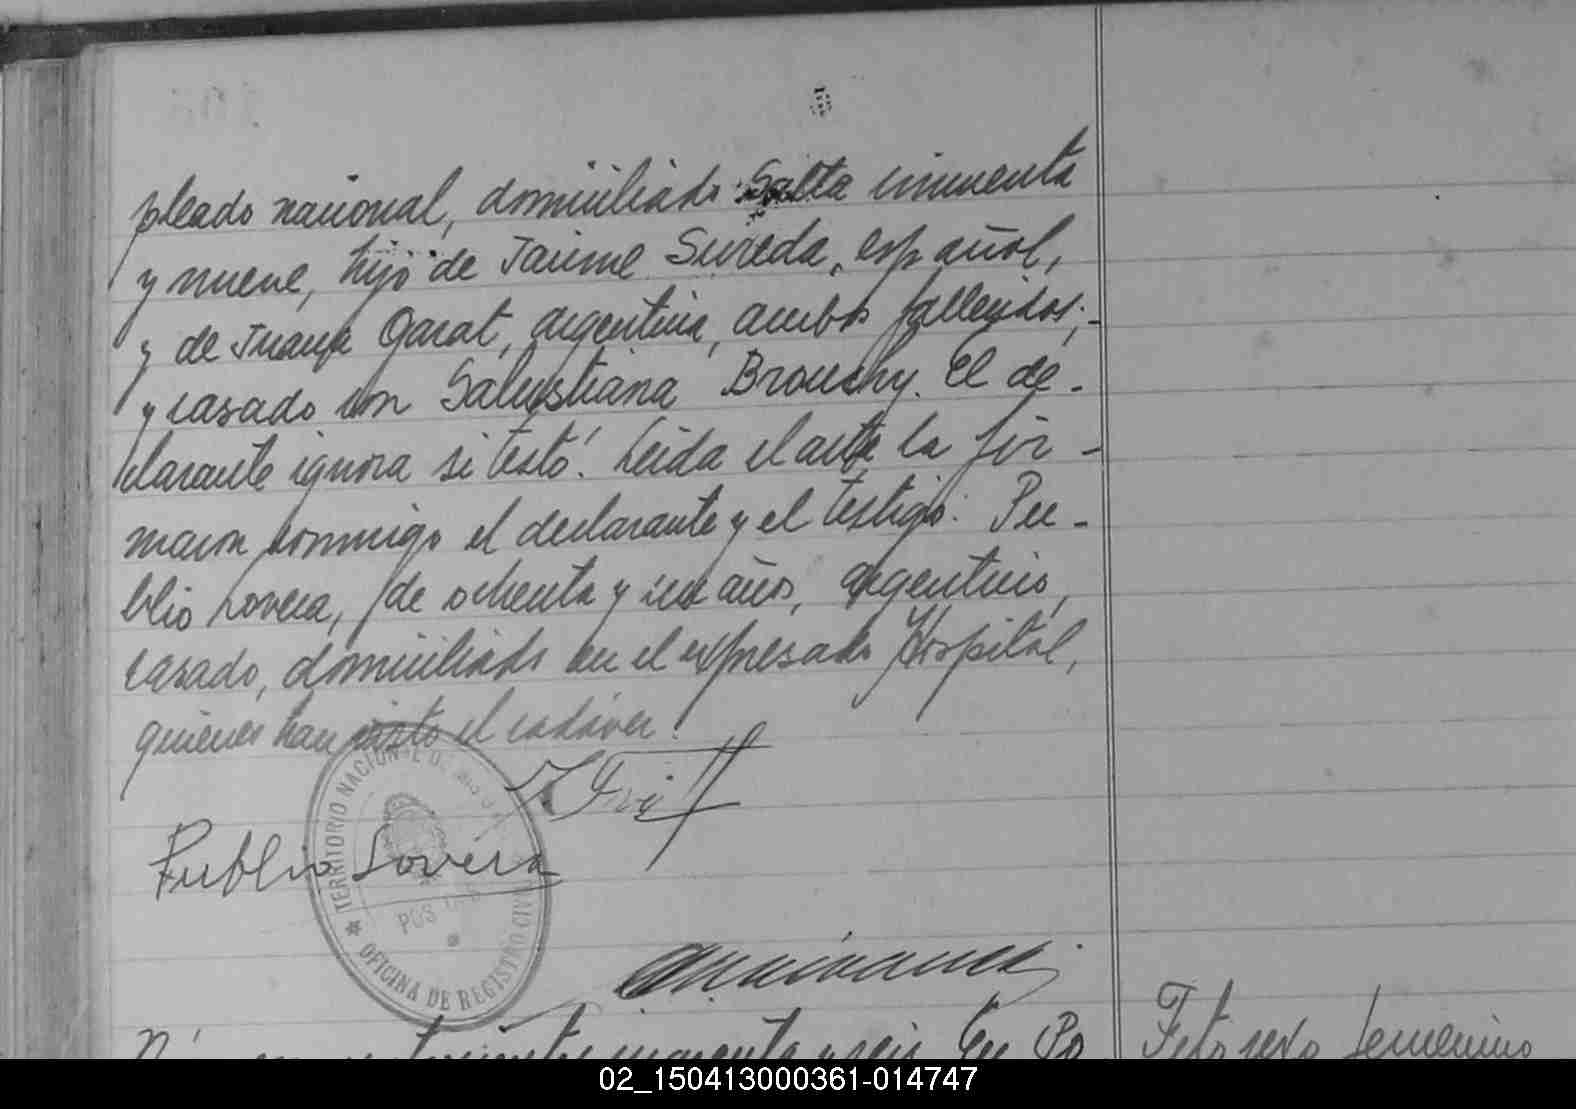 pleado nacional, domiciliado Salta cincuenta
y nueve, hijo de Jaime Sureda, español,
y de Juana Garat, argentina, ambos fallecidos;-
y casado con Salustiana Brouchy. El de-
clarante ignora si testó. Leida el acta la fir-
maron conmigo el declarante y el testigo: Pu-
blio Lovera, de ochenta y seis años, argentino,
casado, domiciliado en el expresado Hospital,
quienes han visto el cadáver.
Publio Lovera
TERRITORIO NACIONAL DE MISIONES
POSADAS
OFICINA DE REGISTRO CIVIL
cuarenta y seis En Po
Feto sexo femenino
02_150413000361-014747